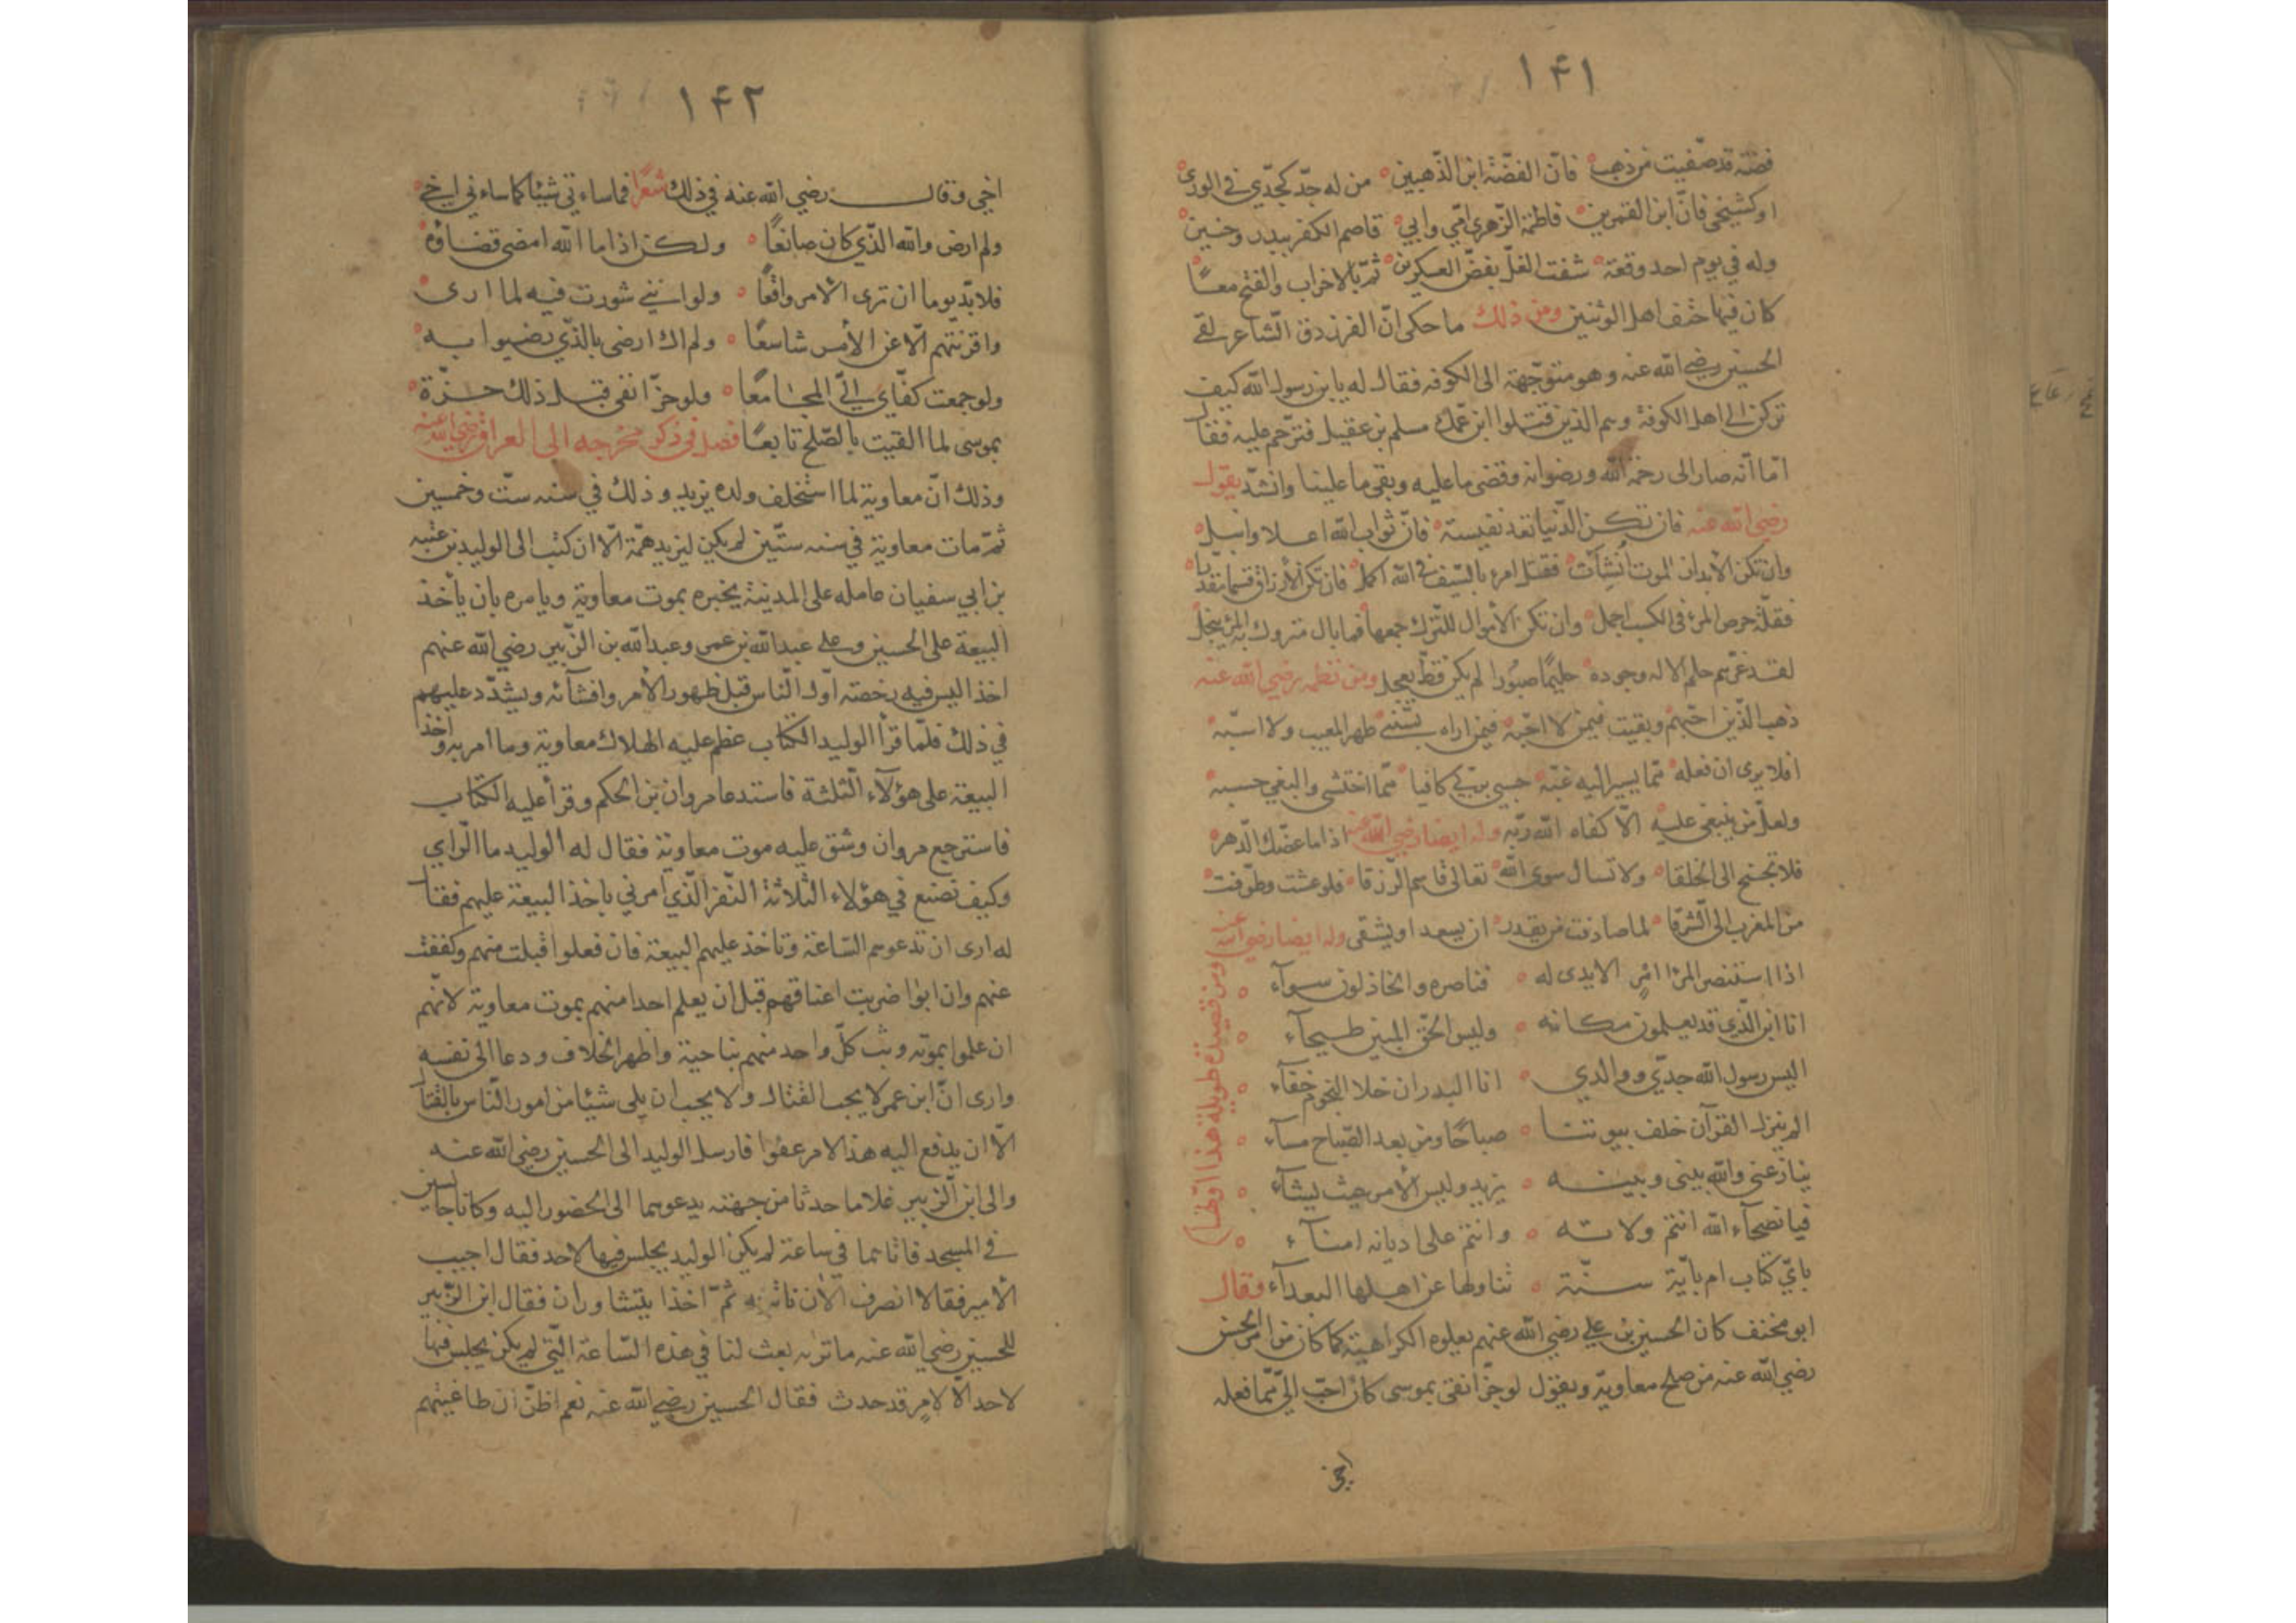 ١٤١
فضة قد صفيت من ذهب فانّ الفضّة ابن الذّهبين من له جدّ كجدّي في الورى
او كشيخي فانّ ابن القمرين فاطمة الزّهرى امّي وابي قاصم الكفر ببدر وحنين
وله في يوم احد وقعة شفت الغلّ بفضّ العسكرين ثمّ بالاحزاب والفتح معاً
كان فيها حتف اهل الوثنين ومن ذلك ما حكى انّ الفرزدق الشّاعر لقي
الحسين رضي الله عنه وهو متوجّهة الى الكوفه فقال له يا بن رسول الله كيف
تركن الى اهل الكوفة وهم الذين قتلوا ابن عمّك مسلم بن عقيل فترحّم عليه فقال
امّا انّه صار الى رحمة الله ورضوانه وقضى ما عليه وبقى ما علينا وانشد يقول
رضي الله عنه فان تكن الدّنيا تعدّ نفيسة فانّ ثواب الله اعلا وانبل
وان تكن الأبدان للموت اُنشأت فقتل امرء بالسّيف في الله اكمل فان تكن الأرزاق قسما مقدّرا
فقلّة حرص المرء في الكسب اجمل وان تكن الأموال للتّرك جمعها فما بال متروك به المرء يبخل
لقد غرّهم حلم الاله وجوده حليمًا صبُورا لم يكن قطّ يعجل ومن نظمه رضي الله عنه
ذهب الّذين احبّهم وبقيت فيمن لا احبّه فيمن اراه يسبّني ظهر المغيب ولا اسبّه
افلا يرى ان فعله ممّا يسير اليه غبّه حسبي بربّي كافيا ممّا اختشى والبغي حسبه
ولعلّ من يبغى عليه الّا كفاه الله ربّه وله ايضا رضي الله عنه اذا ما عضّك الدّهر
فلا تجنح الى الخلقا ولا تسال سوى الله تعالى قاسم الرّزقا فلو عشت وطوّفت
من المغرب الى الشّرقا لما صادفت من يقدر ان يسعد او يشقى وله ايضا رضي الله عنه
ومن قصيدة طويلة هذا اوّلها
اذا استنصر المرء امرٍ لا يدى له فناصره والخاذلون سوآء
انا ابن الّذي قد يعلمون مكانه وليس الحقّ المبين طيحآء
اليس رسول الله جدّي ووالدي انا البدر ان خلا النجوم خفآء
الم ينزل القرآن خلف بيوتنا صباحًا ومن بعد الصّباح مسآء
ينازعنى والله بينى وبينه يزيد وليس الأمر حيث يشآء
فيا نصحآء الله انتم ولاته وانتم على اديانه امنآء
بايّ كتاب ام بايّة سنّة تناولها عن اهلها البعدآء فقال
ابو مخنف كان الحسين بن علي رضي الله عنهم يعلوه الكراهية كما كان من امر الحسن
رضي الله عنه من صلح معاوية ويقول لو جزّ انفى بموسى كان احبّ اليّ ممّا فعله
اخي
١٤٢
اخي وقال رضي الله عنه في ذلك شعرًا فما ساءني شيئا كما ساءني اخي
ولم ارض والله الذّي كان صانعًا ولكن اذا ما الله امضى قضاؤه
فلا بدّ يوما ان ترى الامر واقعًا ولو انني شورت فيه لما ارى
واقرنتهم الّا عن الأمر شاسعًا ولم اك ارضى بالذّي رضيوا به
ولو جمعت كفّاي اليّ المجامعًا ولو حزّ انفى قبل ذلك حزّة
بموسى لما القيت بالصّلح تابعًا فصل في ذكر مخرجه الى العراق رضي الله عنه
وذلك انّ معاوية لما استخلف ولده يزيد وذلك في سنه ستّ وخمسين
ثمّ مات معاوية في سنه ستّين لم يكن ليزيد همّة الّا ان كتب الى الوليد بن عتبه
بن ابي سفيان عامله على المدينة يخبره بموت معاوية ويامره بان يأخذ
البيعة على الحسين وعلى عبدالله بن عمر وعبدالله بن الزّبير رضي الله عنهم
اخذا ليس فيه رخصة اوّل النّاس قبل ظهور الأمر وافشآئه ويشدّد عليهم
في ذلك فلمّا قرأ الوليد الكتاب عظم عليه الهلاك معاوية وما امر به واخذ
البيعة على هؤلآء الثّلثة فاستدعا مروان بن الحكم وقرأ عليه الكتاب
فاسترجع مروان وشقّ عليه موت معاوية فقال له الوليد ما الّراي
وكيف تصنع في هؤلاء الثلاثة النّفر الّذي امرني باخذ البيعة عليهم فقال
له ارى ان تدعوهم السّاعة وتاخذ عليهم البيعة فان فعلوا قبلت منهم وكففت
عنهم وان ابوا ضربت اعناقهم قبل ان يعلم احدا منهم بموت معاوية لانّهم
ان علموا بموته وثب كلّ واحد منهم بناحية واظهر الخلاف ودعا الى نفسه
وارى انّ ابن عمر لا يحب القتال ولا يحب ان يلى شيئا من امور النّاس بالقتال
الّا ان يدفع اليه هذا الامر عفوا فارسل الوليد الى الحسين رضي الله عنه
والى ابن الّزبير غلاما حدثا من جهته يدعوهما الى الحضور اليه وكانا جالسين
في المسجد فاتاهما في ساعة لم يكن الوليد يجلس فيها لاحد فقال اجيب
الأمير فقالا انصرف الآن ناتيه ثمّ اخذا يتشاوران فقال ابن الزّبير
للحسين رضي الله عنه ما تراه بعث لنا في هذه السّاعة الّتي لم يكن يجلس فيها
لاحد الّا لامر قد حدث فقال الحسين رضي الله عنه نعم اظنّ ان طاغيتهم